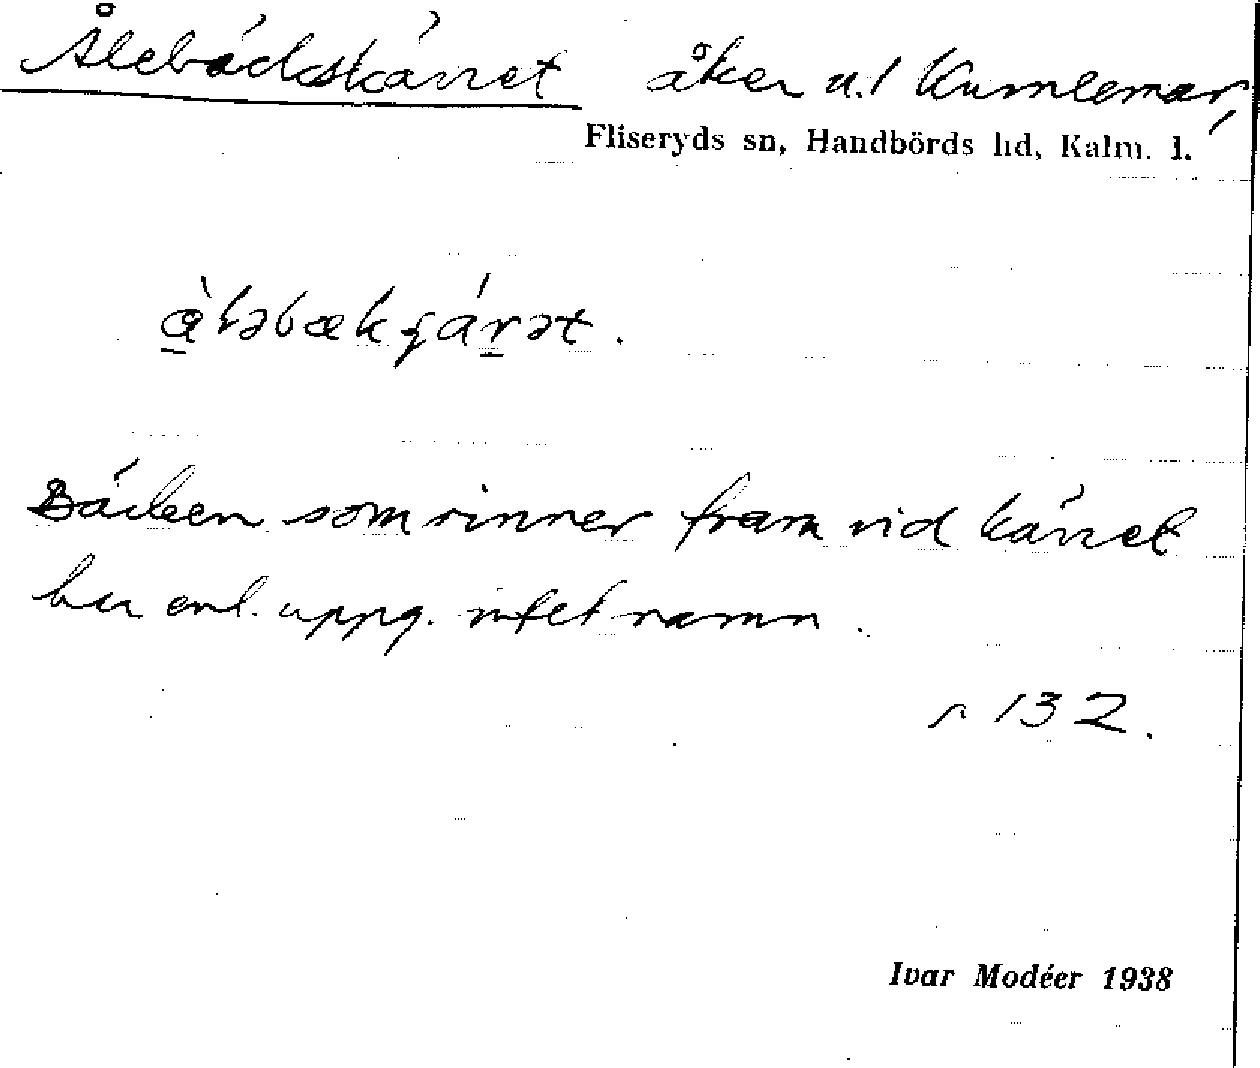 Ålebäckskärret åker u. / Kumlemar,
Fliseryds sn, Handbörds hd, Kalm. l.
Bäcken som rinner fram vid kärret
har enl. uppg. intet namn.
n 132.
Ivar Modéer 1938